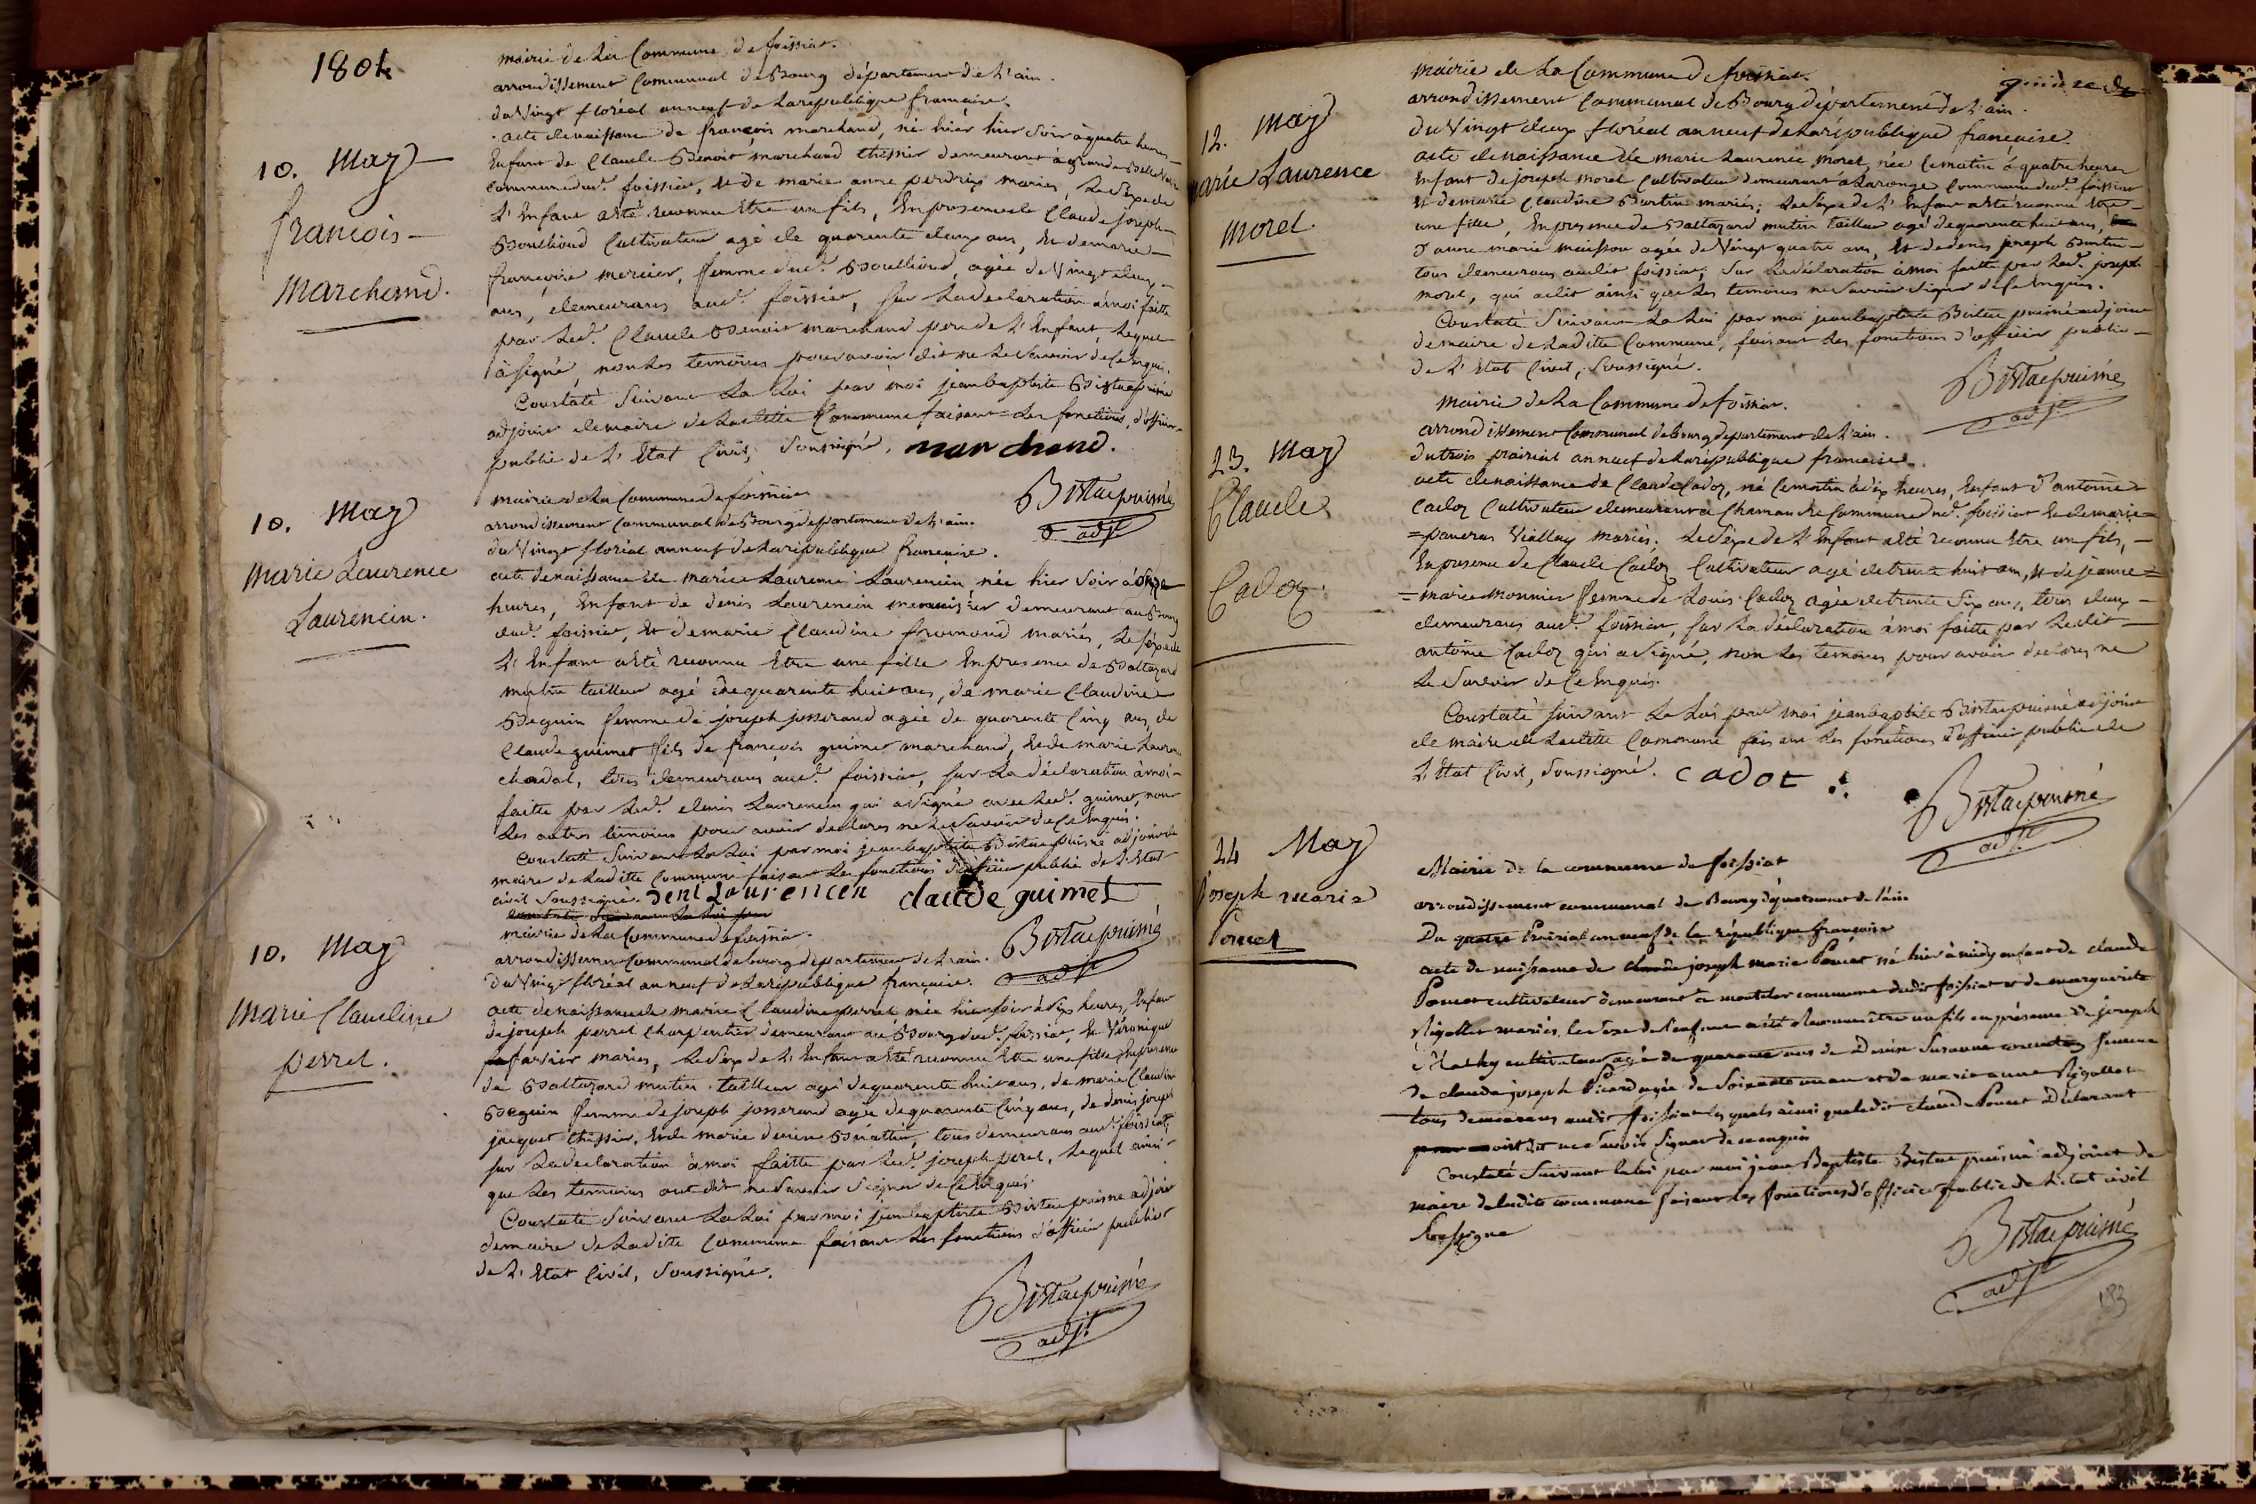 1801
mairie de La Commune de foissiat.
arrondissement Communal de Bourg département de L'ain.
du Vingt floréal an neuf de La république française.
10. May
françois
Marchand.
acte de naissance de françois marchand, né hier soir à quatre heures
Enfant de Claude Benoit marchand thissier demeurant à
commune dud. foissiat, Et de marie anne perdrix mariés, Le Sexe de
L'Enfant a été reconnu Etre un fils, En presence de Claude joseph
Boullioud Cultivateur agé de quarente deux ans, Et de marie
françoise mercier, femme dud. Boullioud, agée de Vingt deux
ans, demeurans aud. foissiat, sur La declaration à moi faitte
par Led. Claude Benoit marchand pere de L'Enfant, Lequel
à signé, non Les temoins pour avoir dit ne Le Savoir de Ce Enquis.
Constaté Suivant La Loi par moi jean baptiste Bistac puiné
adjoint de maire de Laditte Commune faisant Les fonctions d'officier
public de L'Etat Civil, Soussigné. marchand.
Bistac puiné
adjt
10. May
Marie Laurence
Laurencin.
mairie de La Commune de foissiat
arrondissement Communal de Bourg departement de L'ain.
du Vingt floréal an neuf de La republique française.
acte de naissance de marie Laurence Laurencin née hier Soir à onze
heures, Enfant de denis Laurencin demeurant au Bourg
dud. foissiat, Et de marie Claudine fromond mariés, Le Sexe de
L'Enfant a été reconnu Etre une fille En presence de Baltazard
mutin tailleur agé de quarente huit ans, de marie Claudine
Beguin femme de joseph josserand agée de quarente Cinq ans, de
Claude guimet fils de françois guimet marchand, Et de marie Laurence
chadal, tous demeurans aud. foissiat, sur La déclaration à moi
faitte par Led. denis Laurencin qui a Signé avec Led. guimet, non
Les autres témoins pour avoir declarés ne Le Savoir de Ce Enquis.
Constaté Suivant La Loi par moi jean baptiste Bistac puiné adjoint de
maire de Laditte Commune faisant Les fonctions d'officier public de L'Etat
civil Soussigné. Deni Laurencin claude guimet
Bistac puiné
adjt
10. May
Marie Claudine
perret.
mairie de La Commune de foissiat.
arrondissement Communal de Bourg departement de L'ain.
du Vingt floréal an neuf de La république française.
acte de naissance de marie Claudine perret née hier soir à dix heures, Enfant
de joseph perret Charpentier demeurant au Bourg dud. foissiat, Et Véronique
favier mariés, Le Sexe de L'Enfant a été reconnu Etre une fille, En presence
de Baltazard mutin tailleur agé de quarente huit ans, de marie Claudine
Beguin femme de joseph josserand agée de quarente Cinq ans, de denis joseph
jacquet thissier, Et de marie denise tous demeurans aud. foissiat,
sur La declaration à moi faitte par Led. joseph peret, Lequel ainsi
que Les temoins ont dit ne Savoir Signer de Ce Enquis.
Constaté Suivant La Loi par moi jean baptiste Bistac puiné adjoint
de maire de Laditte Commune faisant Les fonctions d'officier public
de L'Etat Civil, Soussigné.
Bistac puiné
adjt
quinze
12. May
marie Laurence
Morel.
mairie de La Commune de foissiat.
arrondissement Communal de Bourg département de L'ain.
du Vingt deux floréal an neuf de La république française.
acte de naissance de marie Laurence morel, née Ce matin à quatre heures
Enfant de joseph morel Cultivateur demeurant à Commune dud. foissiat
Et de marie Claudine mariés; Le Sexe de L'Enfant a été reconnu Etre
une fille, En presence de Baltazard mutin tailleur agé de quarente huit ans,
d'anne marie agée de Vingt quatre ans, Et de denis joseph
tous demeurans audit foissiat, Sur La déclaration à moi faitte par Led. joseph
morel, qui a dit ainsi que Les temoins ne Savoir Signer de Ce Enquis.
Constaté Suivant La Loi par moi jean baptiste Bistac puiné adjoint
de maire de Laditte Commune, faisant Les fonctions d'officier public
de L'Etat Civil, Soussigné.
Bistac puiné
adjt
23. May
Claude
Cadoz.
mairie de La Commune de foissiat.
arrondissement Communal de Bourg departement de L'ain.
du trois prairial an neuf de La république française.
acte de naissance de Claude Cadoz, né Ce matin à dix heures, Enfant d'antoine
Cadoz Cultivateur demeurant à Commune dud. foissiat Et de marie
pancras Viallay mariés. Le Sexe de L'Enfant a été reconnu Etre un fils,
En presence de Claude Cadoz Cultivateur agé de trente huit ans, Et de jeanne
marie monnier femme de Louis Cadoz agée de trente Six ans, tous deux
demeurans aud. foissiat, sur La déclaration à moi faitte par Ledit
antoine Cadoz qui a Signé, non Les temoins pour avoir declarés ne
Le Savoir de Ce Enquis.
Constaté suivant La Loi par moi jean baptiste Bistac puiné adjoint
de maire de Laditte Commune faisant Les fonctions d'officier public de
L'Etat Civil, Soussigné. cadot
Bistac puiné
adjt
24 May
Joseph marie
Poncet
Mairie de la commune de foissiat
arrondissement communal de Bourg département de l'ain
Du quatre Prairial an neuf de la république française
acte de naissance de claude joseph marie Poncet né hier à midy enfant de claude
Poncet cultivateur demeurant à commune dudit foissiat et de marguerite
Rigollet mariés, le sexe de l'enfant a été reconnu être un fils en présence de joseph
cultivateur agé de quarante ans de Denise Suzanne femme
de claude joseph Picard agée de Soixante un an et de marie anne Rigollet
tous demeurans audit foissiat les quels ainsi que ledit claude Poncet Déclarant
ont dit ne savoir signer de ce enquis
Constaté Suivant la loi par moi jean Baptiste Bistac puiné adjoint de
maire de ladite commune faisant les fonctions d'officier public de l'Etat civil
Soussigné
Bistac puiné
adjt
183